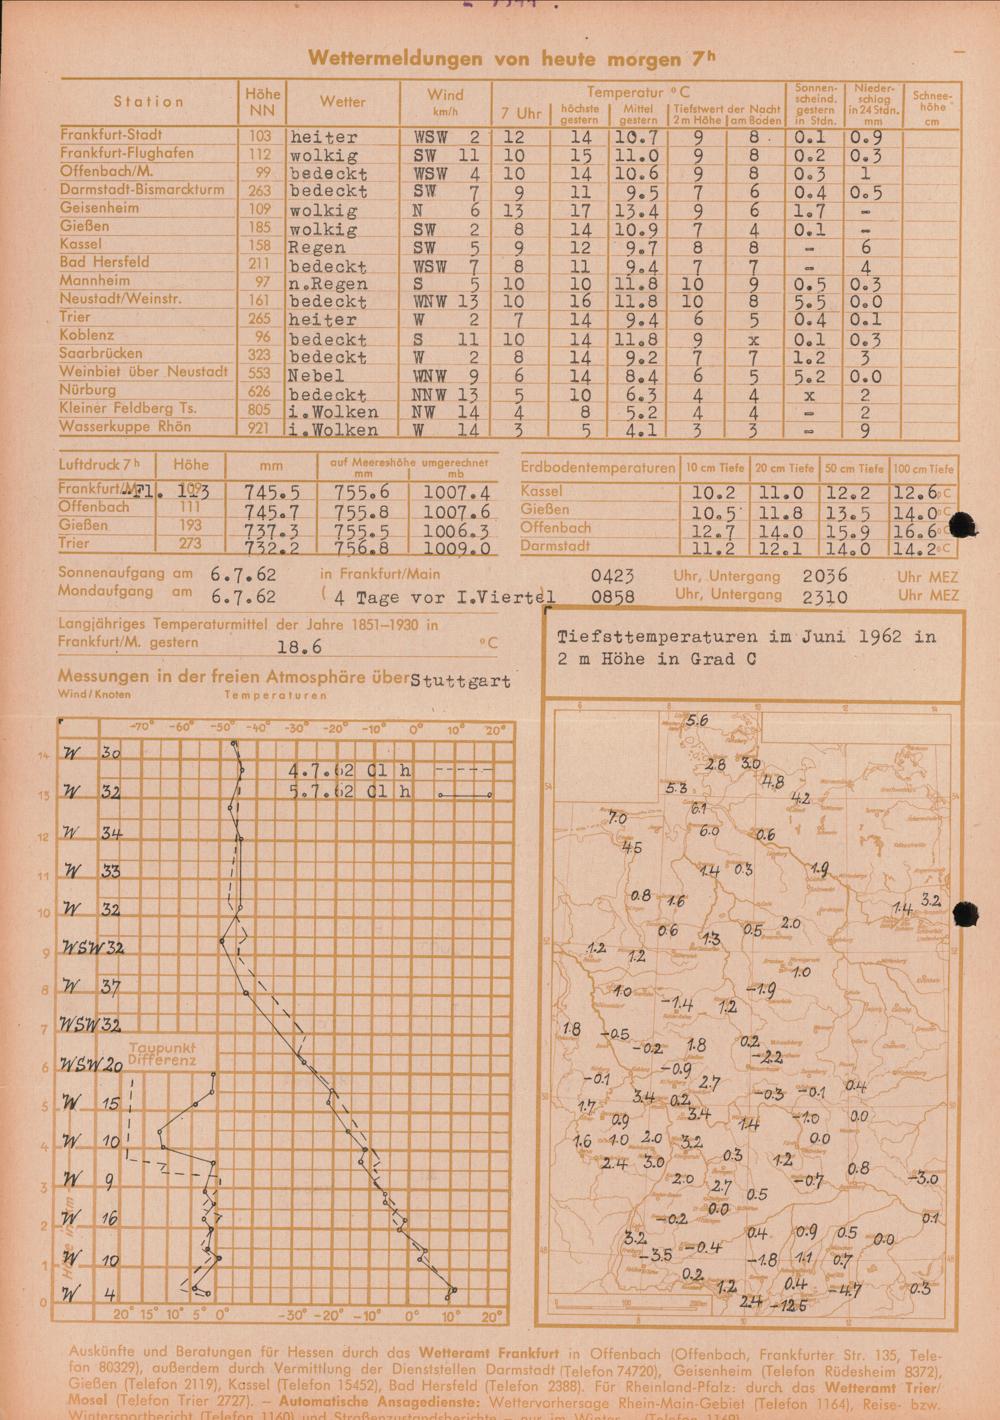 Wettermeldungen von heute morgen 7h
Station Höhe NN Wetter Wind km/h Temperatur °C Sonnenscheind. gestern in Stdn. Niederschlag in 24 Stdn. mm Schneehöhe cm
7 Uhr höchste gestern Mittel gestern Tiefstwert der Nacht 2 m Höhe am Boden
Frankfurt-Stadt 103 heiter WSW 2 12 14 10.7 9 8 0.1 0.9
Frankfurt-Flughafen 112 wolkig SW 11 10 15 11.0 9 8 0.2 0.3
Offenbach/M. 99 bedeckt WSW 4 10 14 10.6 9 8 0.3 1
Darmstadt-Bismarckturm 263 bedeckt SW 7 9 11 9.5 7 6 0.4 0.5
Geisenheim 109 wolkig N 6 13 17 13.4 9 6 1.7 -
Gießen 185 wolkig SW 2 8 14 10.9 7 4 0.1 -
Kassel 158 Regen SW 5 9 12 9.7 8 8 - 6
Bad Hersfeld 211 bedeckt WSW 7 8 11 9.4 7 7 - 4
Mannheim 97 n.Regen S 5 10 10 11.8 10 9 0.5 0.3
Neustadt/Weinstr. 161 bedeckt WNW 13 10 16 11.8 10 8 5.5 0.0
Trier 265 heiter W 2 7 14 9.4 6 5 0.4 0.1
Koblenz 96 bedeckt S 11 10 14 11.8 9 x 0.1 0.3
Saarbrücken 323 bedeckt W 2 8 14 9.2 7 7 1.2 3
Weinbiet über Neustadt 553 Nebel WNW 9 6 14 8.4 6 5 5.2 0.0
Nürburg 626 bedeckt NNW 13 5 10 6.3 4 4 x 2
Kleiner Feldberg Ts. 805 i.Wolken NW 14 4 8 5.2 4 4 - 2
Wasserkuppe Rhön 921 i.Wolken W 14 3 5 4.1 3 3 - 9
Luftdruck 7h Höhe mm auf Meereshöhe umgerechnet mm mb
Frankfurt/M.-Fl. 113 745.5 755.6 1007.4
Offenbach 111 745.7 755.8 1007.6
Gießen 193 737.3 755.5 1006.3
Trier 273 732.2 756.8 1009.0
Erdbodentemperaturen 10 cm Tiefe 20 cm Tiefe 50 cm Tiefe 100 cm Tiefe
Kassel 10.2 11.0 12.2 12.6 °C
Gießen 10.5 11.8 13.5 14.0 °C
Offenbach 12.7 14.0 15.9 16.6 °C
Darmstadt 11.2 12.1 14.0 14.2 °C
Sonnenaufgang am 6.7.62 in Frankfurt/Main 0423 Uhr, Untergang 2036 Uhr MEZ
Mondaufgang am 6.7.62 ( 4 Tage vor I.Viertel) 0858 Uhr, Untergang 2310 Uhr MEZ
Langjähriges Temperaturmittel der Jahre 1851–1930 in
Frankfurt/M. gestern 18.6 °C
Messungen in der freien Atmosphäre über Stuttgart
Wind/Knoten Temperaturen
-70° -60° -50° -40° -30° -20° -10° 0° 10° 20°
14 W 30
4.7.62 01 h
13 W 32 5.7.62 01 h
12 W 34
11 W 33
10 W 32
9 WSW 32
8 W 37
7 WSW 32
6 WSW 20
Taupunkt
Differenz
5 W 15
4 W 10
3 W 9
2 W 16
1 W 10
0 W 4
20° 15° 10° 5° 0° -30° -20° -10° 0° 10° 20°
Tiefsttemperaturen im Juni 1962 in
2 m Höhe in Grad C
5.6
2.8 3.0
5.3 4.8
4.2
7.0 6.1
6.0 0.6
4.5
1.4 0.3 1.9
0.8 1.6 1.4 3.2
0.6 1.3 0.5 2.0
1.2 1.2
1.0
1.0 -1.4 1.2 -1.9
1.8 -0.5
-0.2 1.8 0.2
-2.2
-0.1 -0.9
2.7 -0.3 -0.1 0.4
1.7 3.4 0.2
0.9 3.4 1.4 -1.0 0.0
1.6 1.0 2.0 3.2 0.0
2.4 3.0 0.3 1.2 0.8
2.0 2.7 0.5 -0.7 -3.0
0.0
-0.2 0.1
3.2 0.4 0.9 0.5 0.0
-3.5 -0.4 -1.8 1.1 0.7
0.2 1.2 0.4 -4.7 0.3
2.4 -12.5
Auskünfte und Beratungen für Hessen durch das Wetteramt Frankfurt in Offenbach (Offenbach, Frankfurter Str. 135, Tele-
fon 80329), außerdem durch Vermittlung der Dienststellen Darmstadt (Telefon 74720), Geisenheim (Telefon Rüdesheim 8372),
Gießen (Telefon 2119), Kassel (Telefon 15452), Bad Hersfeld (Telefon 2388). Für Rheinland-Pfalz: durch das Wetteramt Trier/
Mosel (Telefon Trier 2727). – Automatische Ansagedienste: Wettervorhersage Rhein-Main-Gebiet (Telefon 1164), Reise- bzw.
Wintersportbericht (Telefon 1160) und Straßenzustandsberichte – nur im Winter – (Telefon 1169).